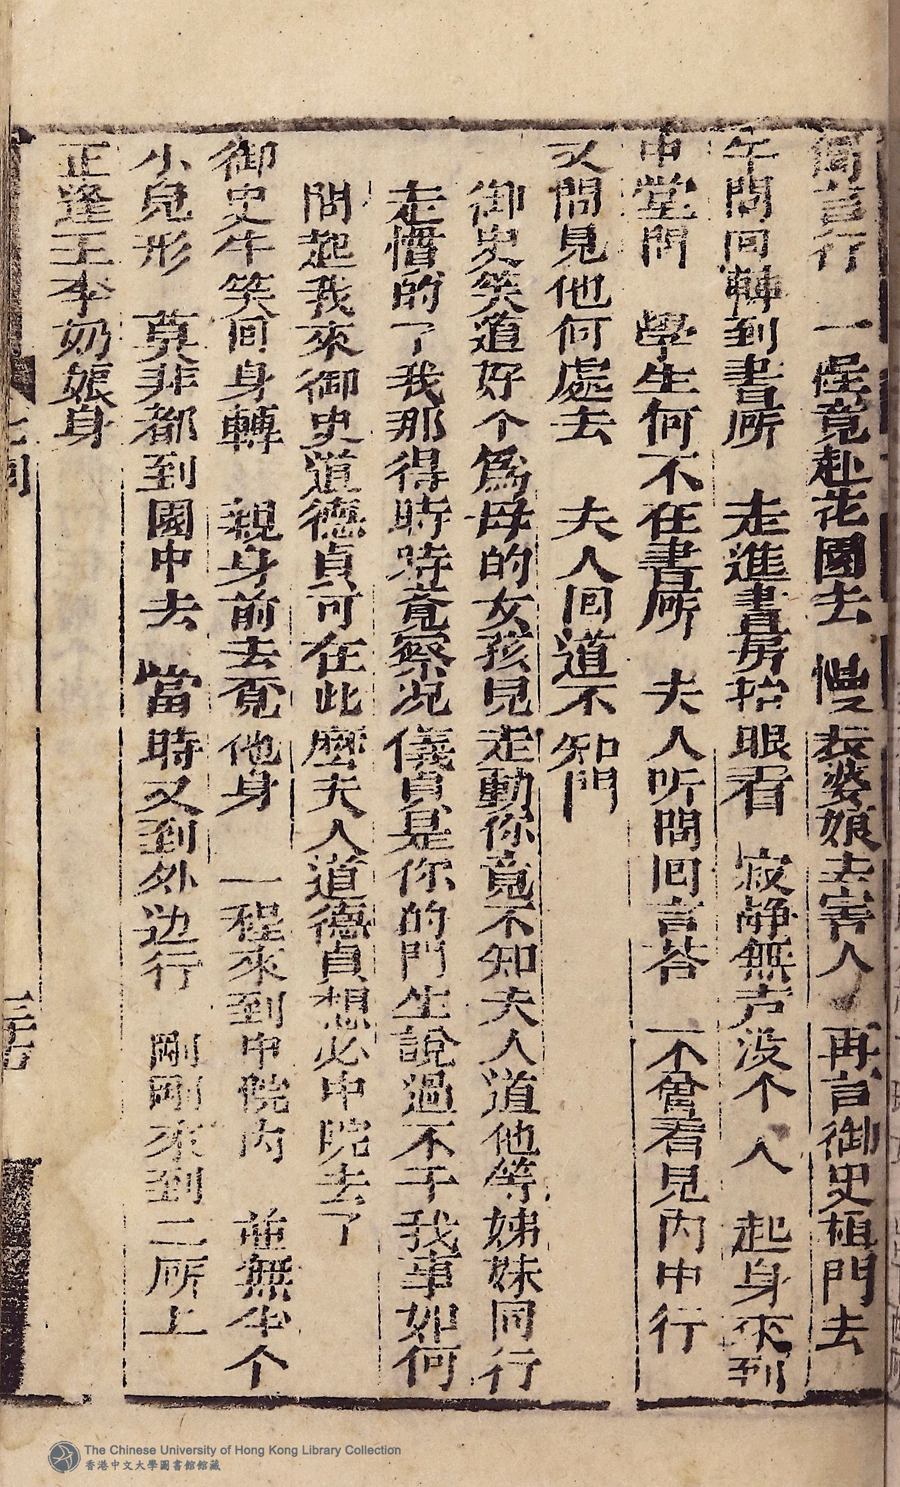 獨言行　一怪竟赴花園去　慢々表婆娘去害人　再言御史植門去
午問回轉到書所　走進書房抬眼看　寂静無声没个人　起身來到
中堂問　學生何不在書所　夫人听問回言荅　不曾看見内中行
又問見他何處去　夫人回道不知門
御史笑道好个爲母的女孩見走動你竟不知夫人道他等姊妹同行
走慣的了我那得時時竟察况儀貞是你的門生說過不干我事如何
問起我來御史道德貞可在此麽夫人道德貞想必中院去了
御史牛笑回身轉　親身前去覔他身　一程來到中院内　並無半个
小兒形　莫非都到園中去　當時又到外边行　剛剛來到二所上
正逢王李奶娘身
The Chinese University of Hong Kong Library Collection
香港中文大學圖書館館藏